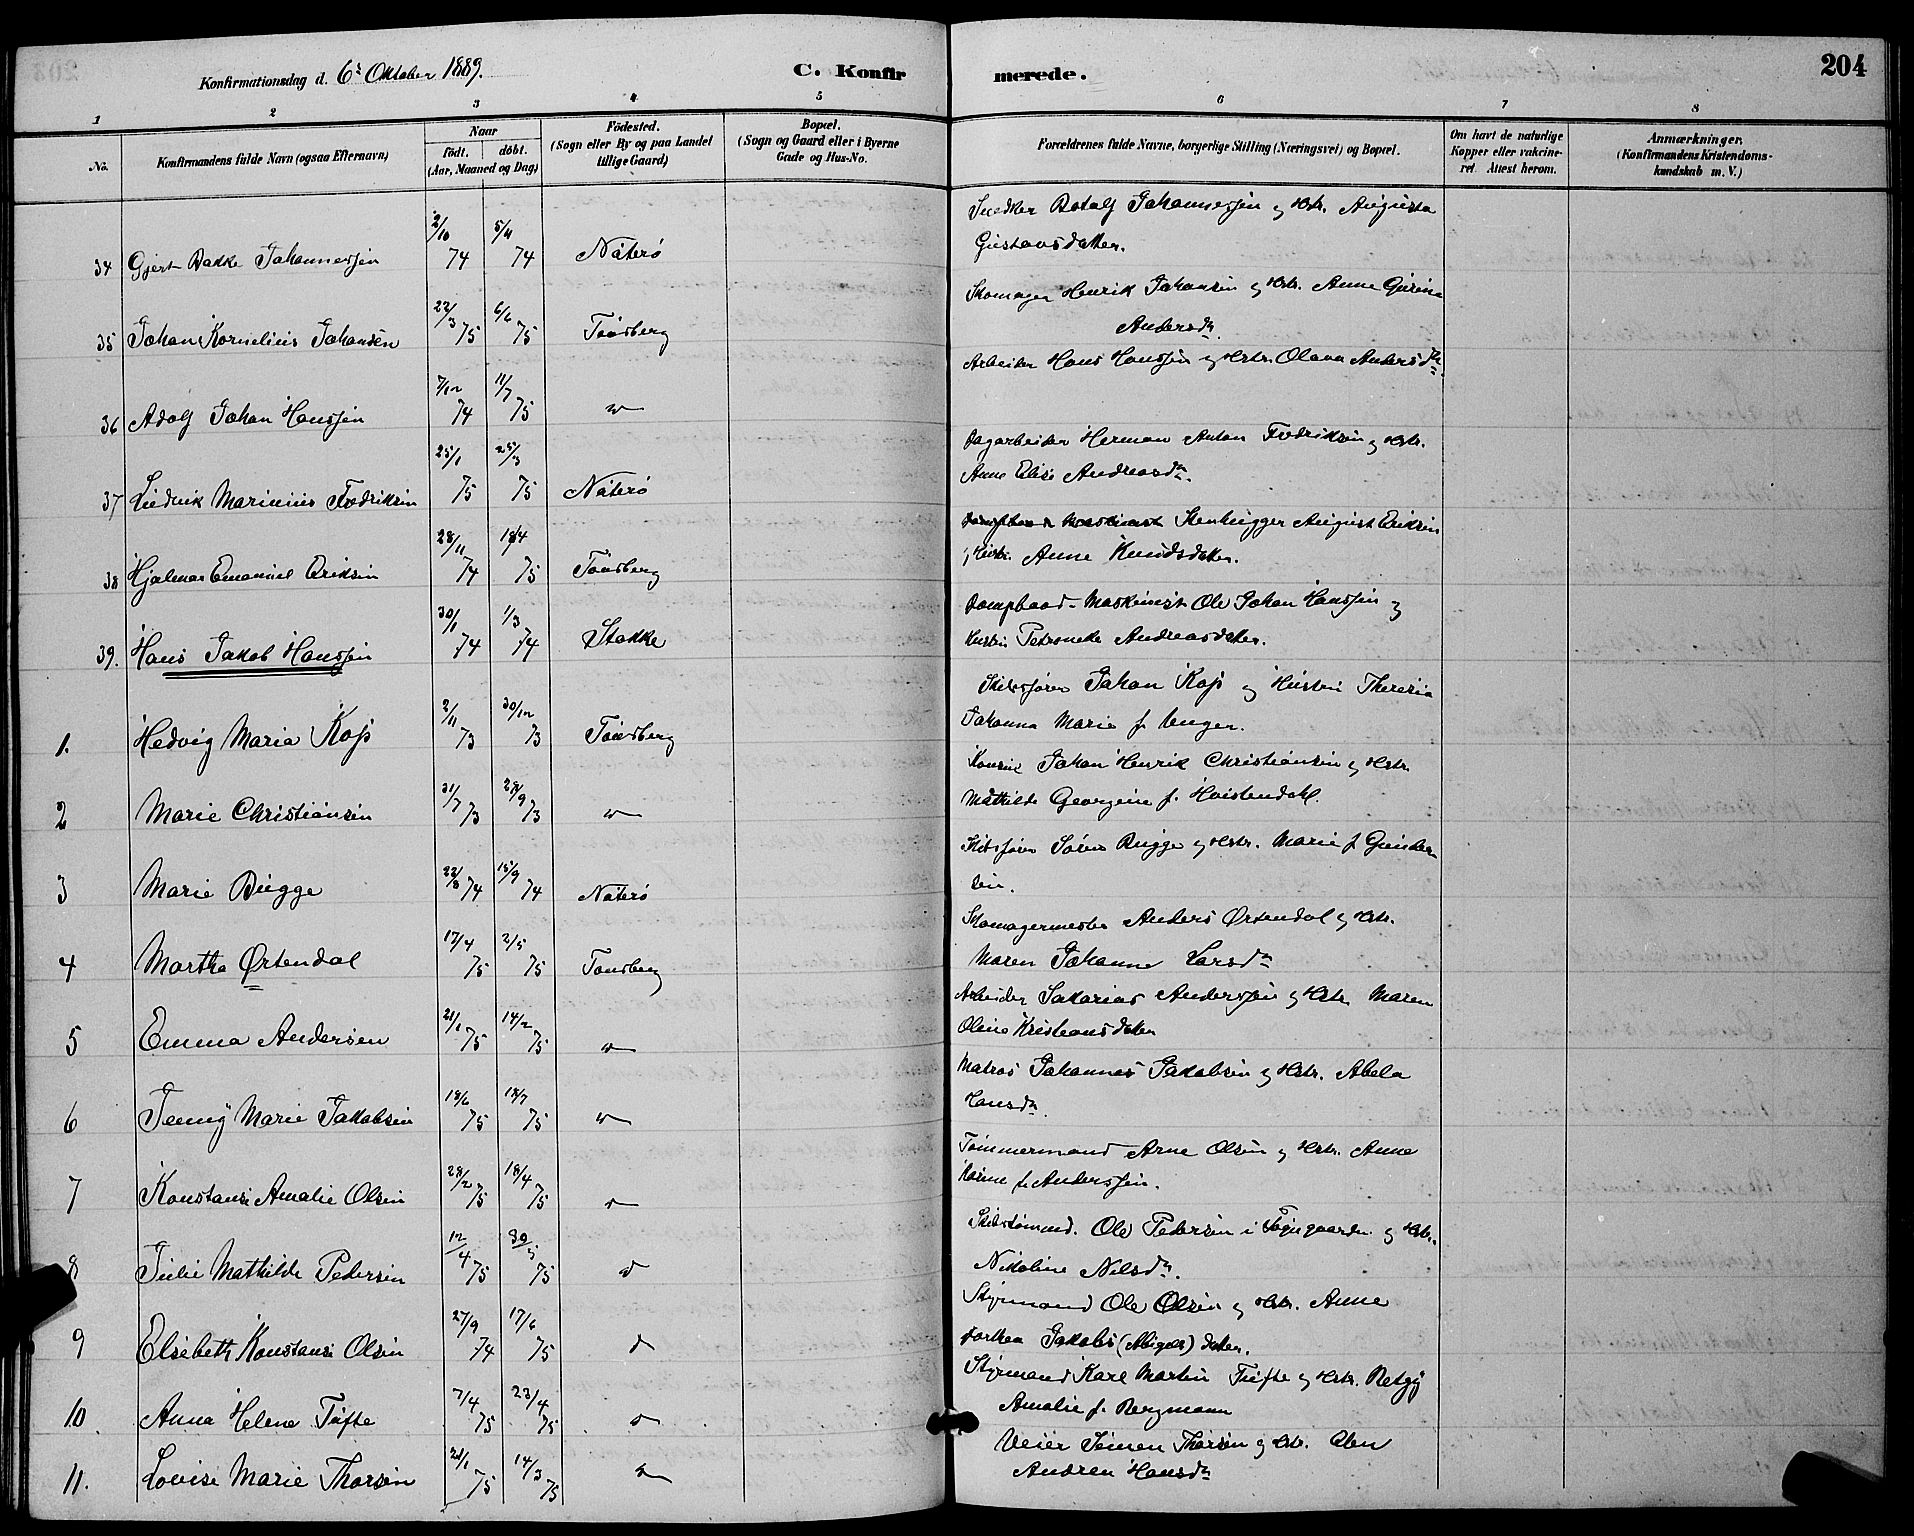 Konfirmationsdag d. 6te Oktober 1889.
C. Konfir
merede.
204
1 2 3 4 5 6 7 8
No.
Konfirmandens fulde Navn (ogsaa Efternavn)
Naar
født. døbt.
(Aar, Maaned og Dag)
Födested.
(Sogn eller By og paa Landet
tillige Gaard)
Bopæl.
(Sogn og Gaard eller i Byerne
Gade og Hus-No.
Forældrenes fulde Navne, borgerlige Stilling (Næringsvei) og Bopæl.
Om havt de naturlige
Kopper eller vakcine-
ret. Attest herom.
Anmærkninger.
(Konfirmandens Kristendoms-
kundskab m. V.)
34 Gjert Bakke Johannessen 2/10 74 5/11 74 Nøterø
Snedker Botolf Johannessen og Hstr. Augusta
Gustavsdatter.
35 Johan Kornelius Johansen 22/3 75 6/6 75 Tønsberg
Skomager Henrik Johansen og Hstr. Anne Gurine
Andersdtr.
36 Adolf Johan Hanssen 7/12 74 11/7 75
Arbeider Hans Hanssen og Hstr. Olava Andersdtr.
37 Ludvik Marinius Fredriksen 25/1 75 25/3 75 Nøterø
Dagarbeider Herman Anton Fredriksen og Hstr.
Anne Elise Andreasdtr.
38 Hjalmar Emanuel Eriksen 28/11 74 18/4 75 Tønsberg
Stenhugger August Eriksen
og Hustr. Anne Knudsdatter.
39. Hans Jakob Hanssen 30/1 74 1/3 74 Stokke
Dampbaad-Maskinist Ole Johan Hanssen og
Hustru Petroneke Andreasdatter.
1. Hedvig Maria Kop 2/11 73 30/12 73 Tønsberg
Skibsfører Johan Kop og Hustru Theresia
Johanna Marie f. Unger.
2 Marie Christiansen 31/7 73 28/9 73
Konsul Johan Henrik Christiansen og Hstr.
Mathilde Georgine f. Hvistendahl.
3 Marie Bugge 22/8 74 15/9 74 Nøterø
Skibsfører Søren Bugge og Hstr. Marie f. Gunder
sen.
4 Martha Ørtendal 17/4 75 2/5 75 Tønsberg
Skomagermester Anders Ørtendal og Hstr.
Maren Johanne Larsdtr
5 Emma Andersen 21/1 75 14/2 75
Arbeider Sakarias Anderssen og Hstr. Maren
Oline Kristiansdatter
6 Jenny Marie Jakobsen 18/6 75 18/7 75
Matros Johannes Jakobsen og Hstr. Abela
Hansdtr.
7 Konstanse Amalie Olsen 28/2 75 18/4 75
Tømmermand Arne Olsen og Hstr. Anne
Karine f. Anderssen.
8 Julie Mathilde Pedersen 12/4 75 30/5 75
Skibstømmd. Ole Pedersen i Fogegaarden og Hstr.
Nikoline Nilsdtr.
9 Elisbeth Konstanse Olsen 27/9 74 17/6 75
Styrmand Ole Olsen og Hstr. Anne
Dorthea Jakobs (Abigael) datter.
10. Anna Helene Tufte 7/4 75 23/4 75
Styrmand Karl Martin Tufte og Hstr. Betzy
Amalie f. Bergmann
11. Lovise Marie Thorsen 21/1 75 14/3 75
Veier Simen Thorsen og Hstr. Olen
Andrea Hansdtr